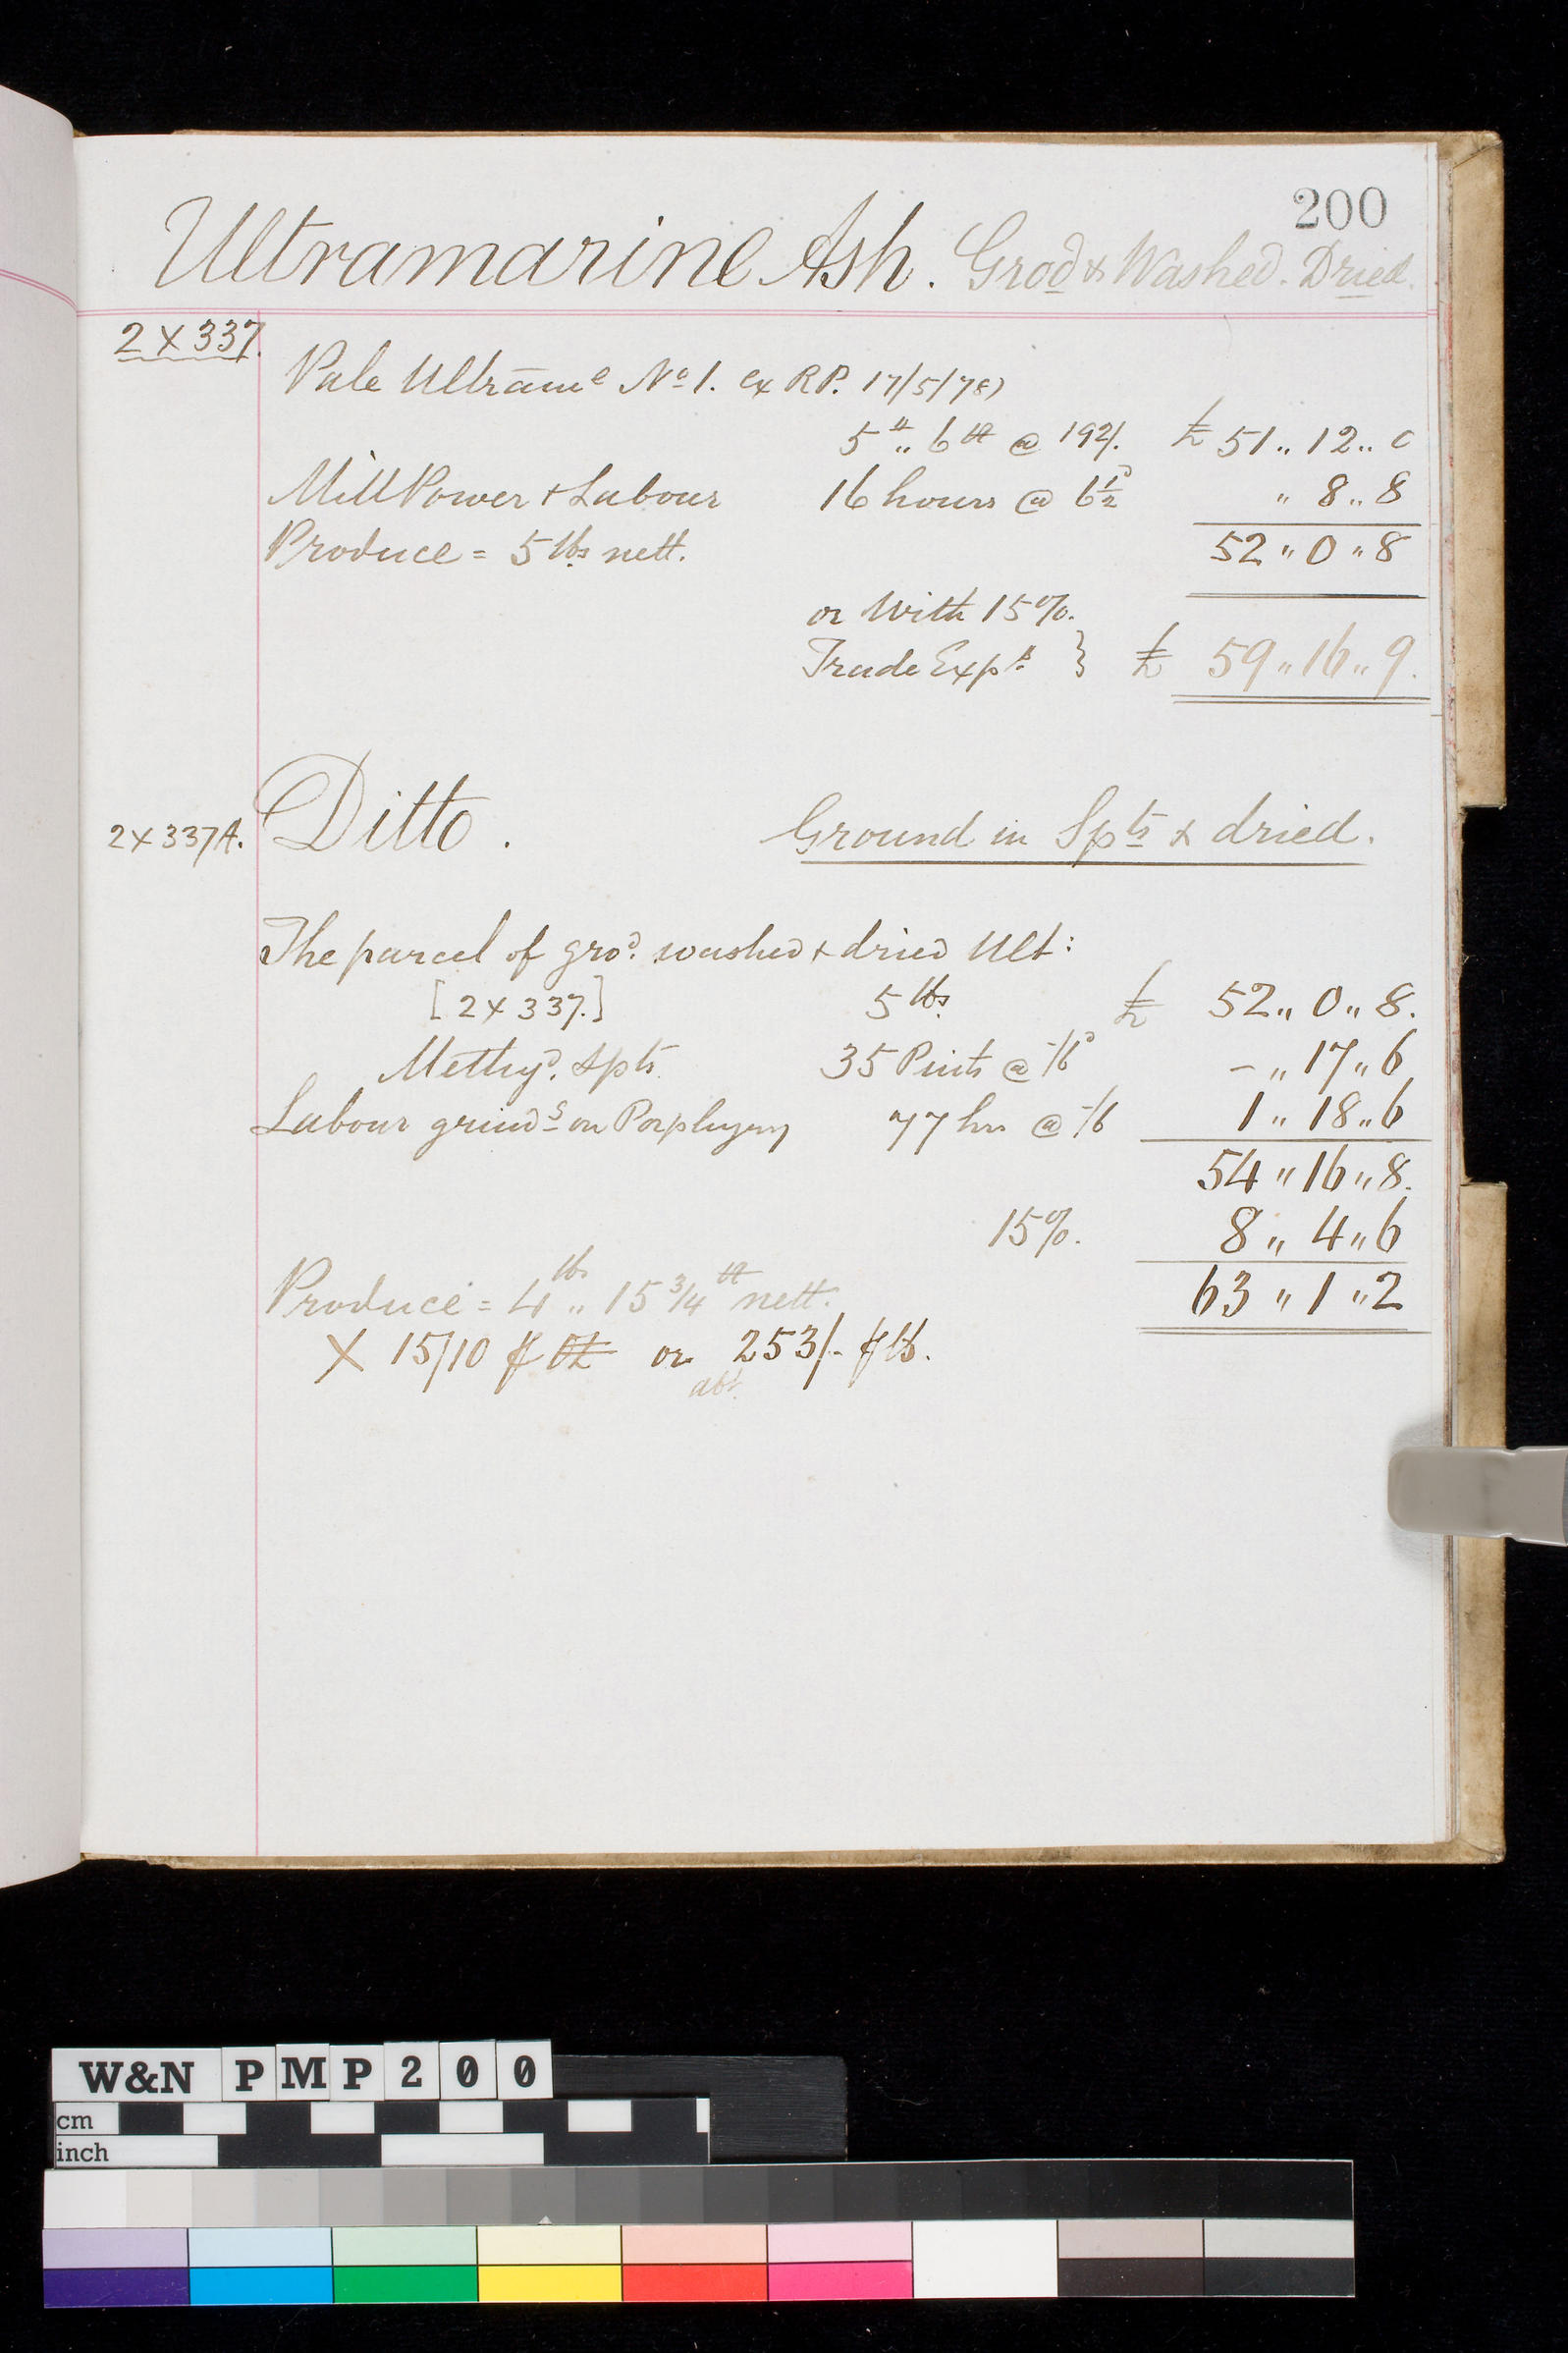 200
Ultramarine Ash. Gro^d & Washed. Dried.
2X337.
Pale Ultram^e No 1. ex RP. 17/5/78)
5 ℔ „ 6 oz @ 192/. £ 51 „ 12 „ 0
Mill Power & Labour 16 hours @ 6½^d „ 8 „ 8
Produce = 5 lbs nett. 52 „ 0 „ 8
or With 15%.
Trade Exp^s } £ 59 „ 16 „ 9.
2X337A. Ditto. Ground in Spts & dried.
The parcel of gro^d. washed & dried Ult:
[2X337.] 5 lbs. £ 52 „ 0 „ 8.
Methy^d. Spts. 35 Pints @ -/6^d - „ 17 „ 6
Labour grind^g on Porphyry 77 hrs @ -/6 1 „ 18 „ 6
54 „ 16 „ 8.
15%. 8 „ 4 „ 6
Produce = 4 lbs „ 15¾ oz nett. 63 „ 1 „ 2
X 15/10 ⅌ oz or 253/- ⅌ lb.
abt.
W&N PMP200
cm
inch